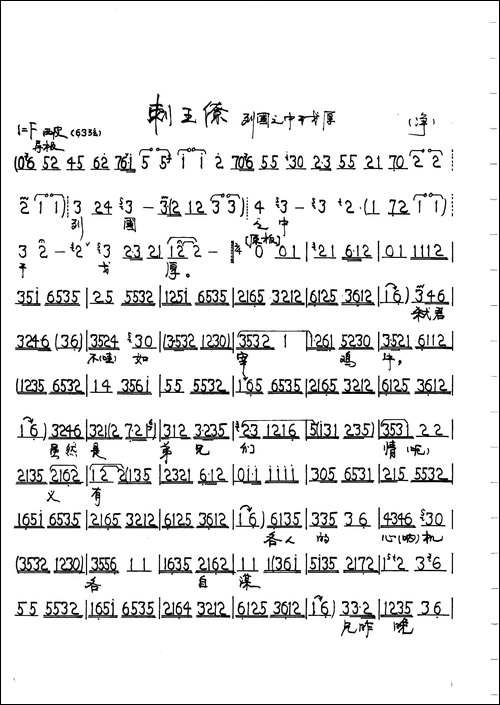 刺王僚 列國之中干戈厚 (净)
1=F 西皮 (6332)
导板
(0276 52 45 62 7621 55 112 70276 55 30 23 55 21 70 22
211) 3 24 3 - 3(2 12 33) 4 3 - 3 2 · (1 72 11)
列 國 之 中
3 2 - 2 3 23 21 122 - [原板] 0 01 21 6·12 01 1112
干 戈 厚。
351 6535 25 5532 1251 6535 2165 3212 6125 3612 16) 346
弑君
3246 (36) 3524 30 (3532 1230) 3532 1 1261 5230 3521 6112
不(哇) 如 宰 鸡 牛。
(1235 6532 14 3561 55 5532 165 6535 2165 3212 6125 3612
16) 3246 3212 72 312 3235 23 1216 5(131 235) 3531 22
虽然是 弟 兄 们 情(呃)
2135 2162 12 2(135 2321 6·12 011 1111 305 6531 215 5532
义 有
1651 6535 2165 3212 6125 3612 16) 6135 335 36 4346 30
各人 的 心(呐)机
(3532 1230) 3556 11 1635 2162 11 1(361 5135 2172 12 36
各 自 谋
55 5532 1651 6535 2164 3212 6125 3612 16) 33·2 1235 36
兄昨 晚